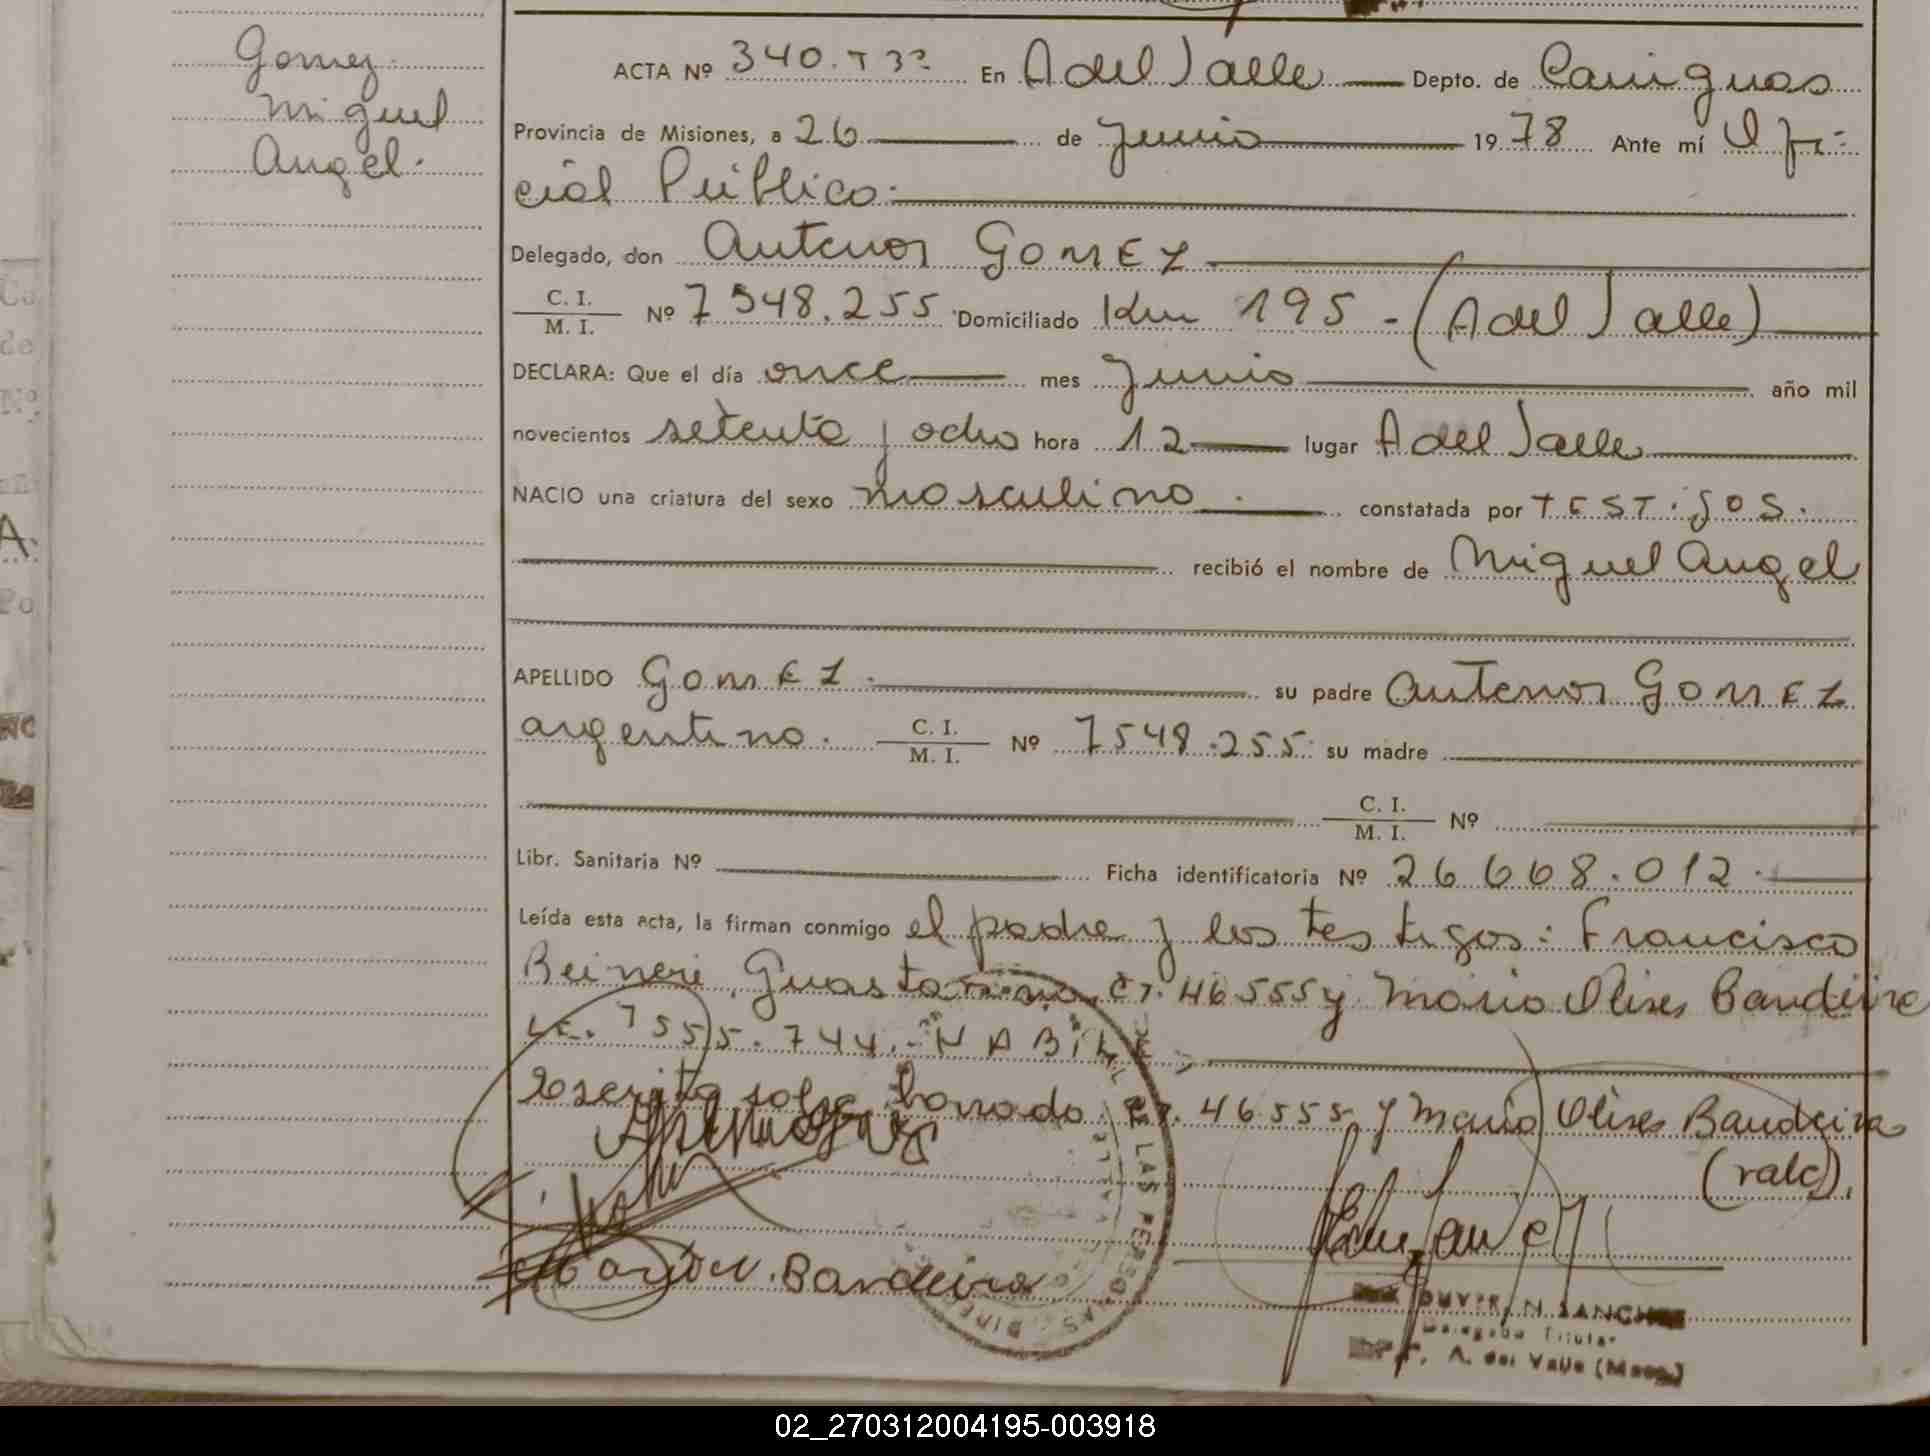 Gomez
Miguel
Angel.
ACTA Nº 340. T 3º En A del Valle Depto. de Cainguas
Provincia de Misiones, a 26 de Junio 1978 Ante mí Ofi-
cial Público.
Delegado, don Antenor GOMEZ
C. I. / M. I. Nº 7548.255 Domiciliado Km 195 - (A del Valle)
DECLARA: Que el día once mes Junio año mil
novecientos setenta y ocho hora 12 lugar A del Valle
NACIO una criatura del sexo masculino. constatada por TESTIGOS.
recibió el nombre de Miguel Angel
APELLIDO GOMEZ. su padre Antenor GOMEZ
argentino. C. I. / M. I. Nº 7548.255 su madre
C. I. / M. I. Nº
Libr. Sanitaria Nº Ficha identificatoria Nº 26668.012.
Leída esta acta, la firman conmigo el padre y los testigos: Francisco
46555 y Mario Olises Bandeira
7555.744. HABIL
Escrito sobre borrado 46555 y Mario Olises Bandeira
(vale).
Bandeira
N. SANCHEZ
Delegado Titular
A. del Valle (Mnes.)
DE LAS PERSONAS
02_270312004195-003918